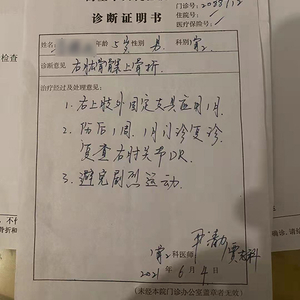 诊断证明书
门诊号:
住院号:
医疗保险号:
检查
姓名: 年龄 5岁 性别 男 科别 骨2
诊断意见 右肱骨髁上骨折
治疗经过及处理意见:
1. 右上肢外固定支具应用1月.
2. 伤后1周、1月门诊复诊
复查右肘关节DR.
3. 避免剧烈运动.
科医师
2021年6月4日
(未经本院门诊办公室盖章者无效)